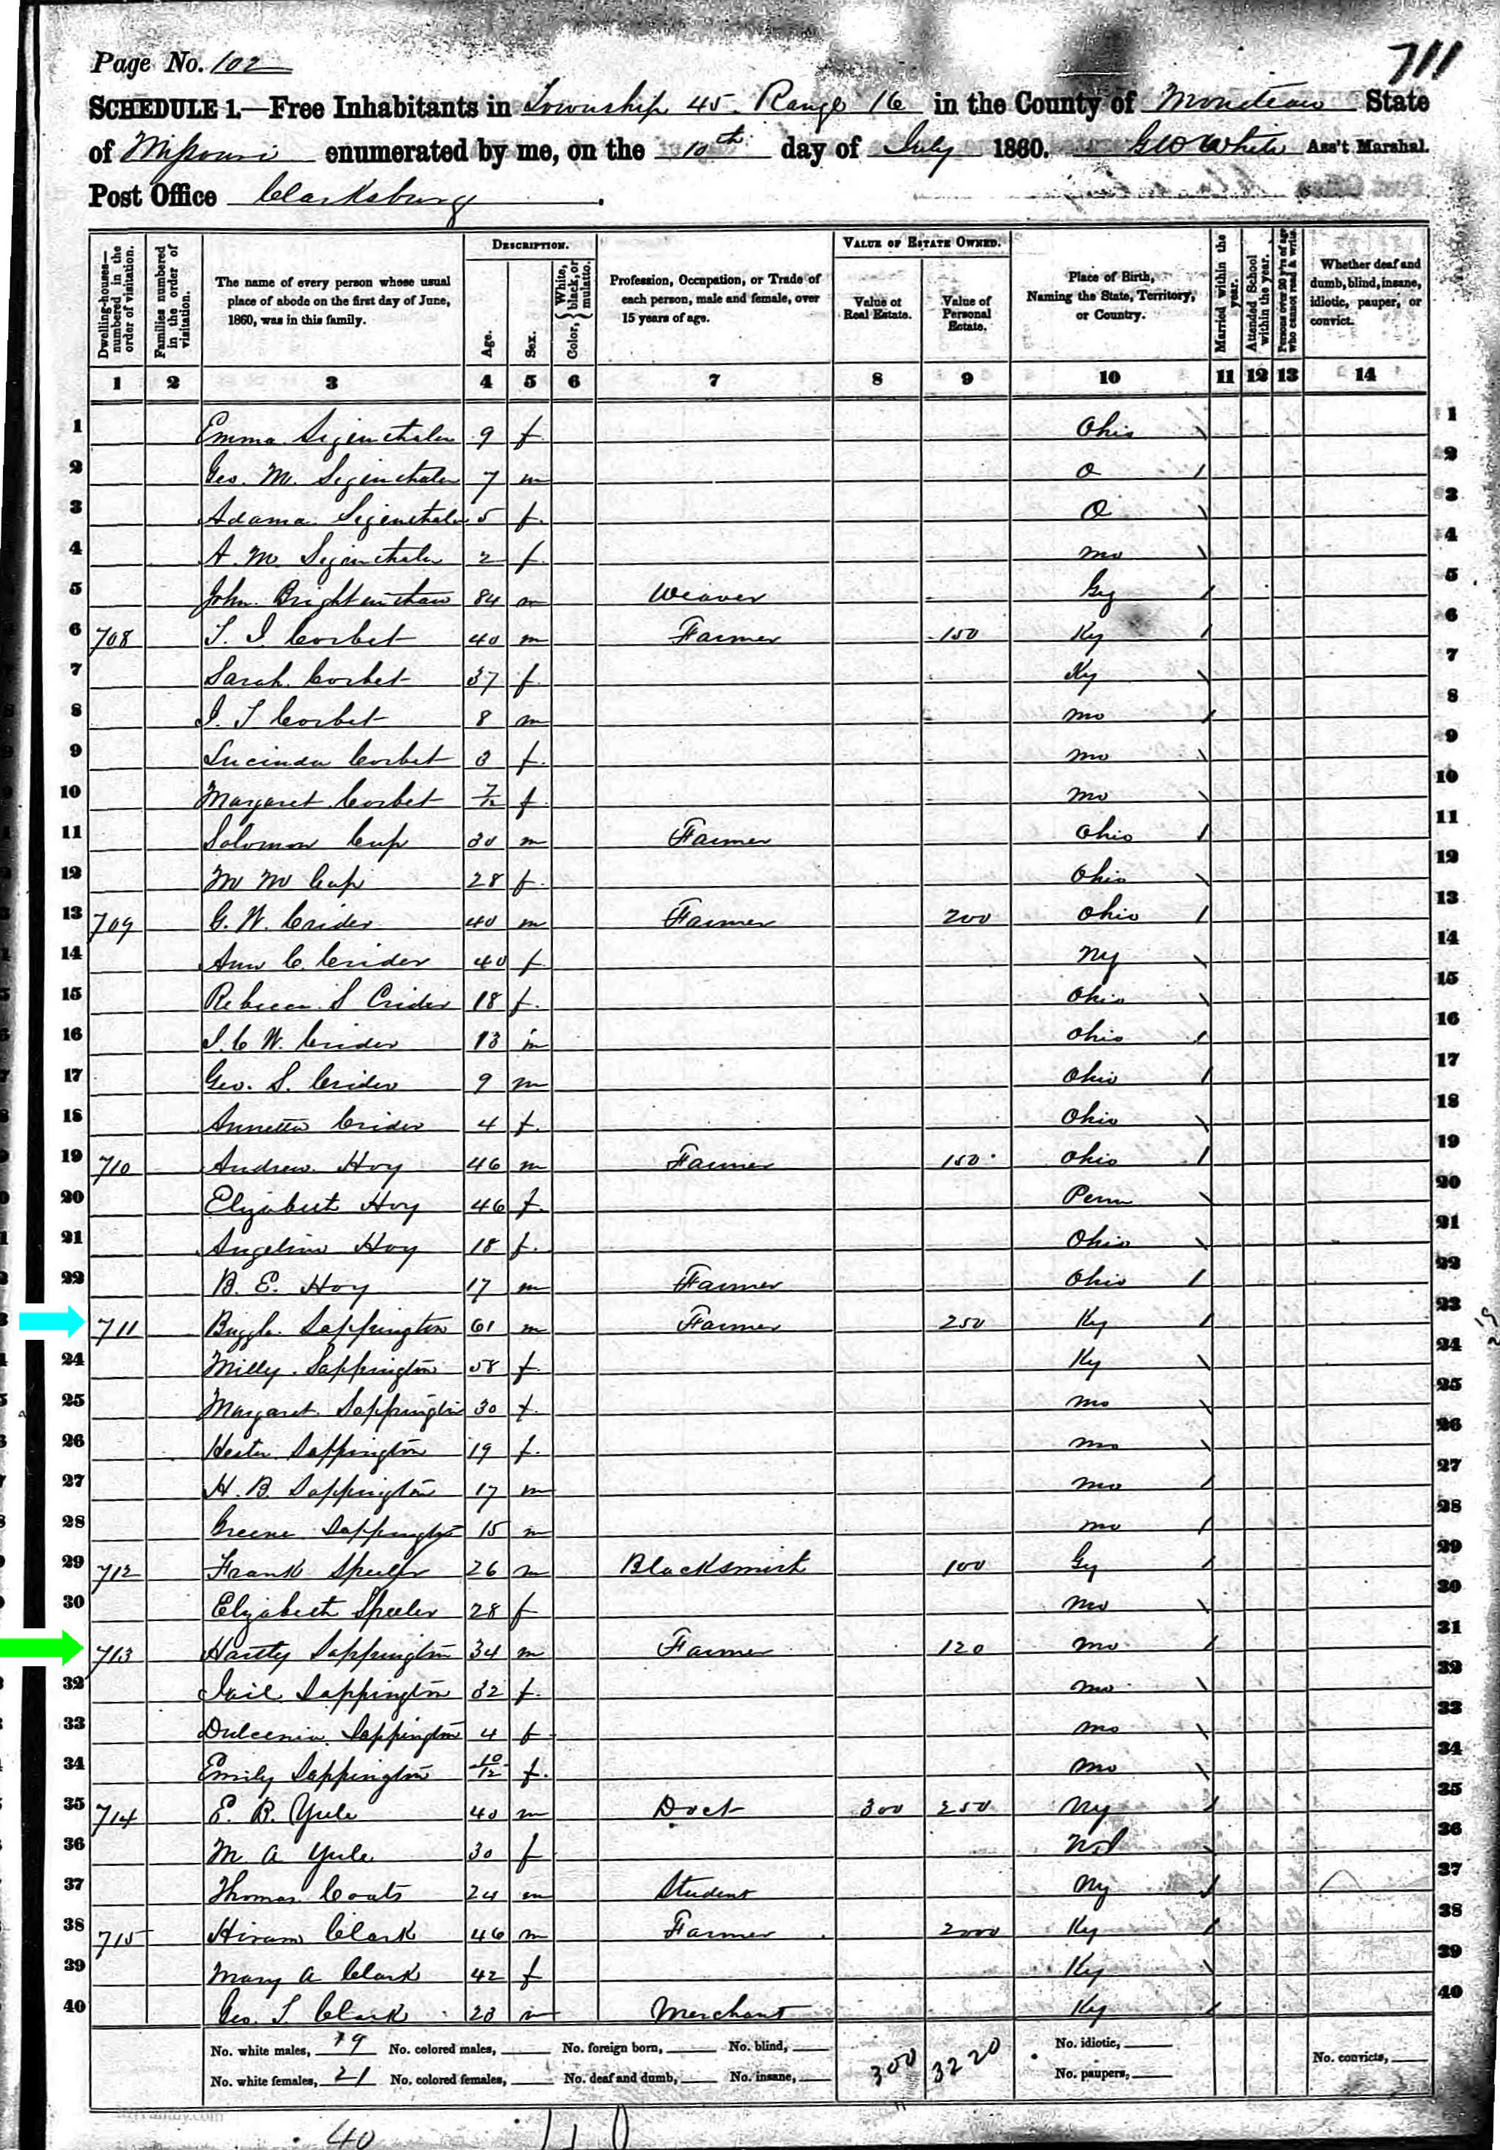 711
Page No. 102
SCHEDULE 1.—Free Inhabitants in Township 45 Range 16 in the County of Moniteau State
of Missouri enumerated by me, on the 10th day of July 1860. Geo White Ass't Marshal.
Post Office Clarksburg.
Dwelling-houses—numbered in the order of visitation.
Families numbered in the order of visitation.
The name of every person whose usual place of abode on the first day of June, 1860, was in this family.
DESCRIPTION.
Age.
Sex.
Color, { White, black, or mulatto.
Profession, Occupation, or Trade of each person, male and female, over 15 years of age.
VALUE OF ESTATE OWNED.
Value of Real Estate.
Value of Personal Estate.
Place of Birth, Naming the State, Territory, or Country.
Married within the year.
Attended School within the year.
Persons over 20 y'rs of age who cannot read & write.
Whether deaf and dumb, blind, insane, idiotic, pauper, or convict.
1 2 3 4 5 6 7 8 9 10 11 12 13 14
1 Emma Sigenthaler 9 f Ohio \ 1
2 Geo. M. Sigenthaler 7 m O / 2
3 Adama Sigenthaler 5 f. O \ 3
4 A. M. Sigenthaler 2 f mo \ 4
5 John 84 m Weaver Gy / 5
6 708 Corbet 40 m Farmer 150 Ky / 6
7 Sarah Corbet 37 f. Ky \ 7
8 Corbet 8 m mo / 8
9 Lucinda Corbet 3 f. mo \ 9
10 Margaret Corbet 7/12 f. mo \ 10
11 Solomon Cup 30 m Farmer Ohio / 11
12 M M Cup 28 f. Ohio \ 12
13 709 G. W. Crider 40 m Farmer 200 Ohio / 13
14 Ann C. Crider 40 f. Ny \ 14
15 Rebecca S Crider 18 f. Ohio \ 15
16 C W. Crider 13 m Ohio / 16
17 Geo. S. Crider 9 m Ohio / 17
18 Annetta Crider 4 f. Ohio \ 18
19 710 Andrew Hoy 46 m Farmer 150 Ohio / 19
20 Elizabeth Hoy 46 f. Penn \ 20
21 Angelina Hoy 18 f. Ohio \ 21
22 B. E. Hoy 17 m Farmer Ohio / 22
23 711 Sappington 61 m Farmer 250 Ky / 23
24 Milly Sappington 58 f. Ky \ 24
25 Margaret Sappington 30 f. mo \ 25
26 Hester Sappington 19 f. mo \ 26
27 H. B. Sappington 17 m mo / 27
28 Greene Sappington 15 m mo / 28
29 712 Frank Speeler 26 m Blacksmith 100 Gy / 29
30 Elizabeth Speeler 28 f mo \ 30
31 713 Hartly Sappington 34 m Farmer 120 mo / 31
32 Sappington 32 f. mo \ 32
33 Dulcenia Sappington 4 f mo \ 33
34 Emily Sappington 10/12 f. mo \ 34
35 714 E. B. Yule 40 m Doct 300 250 Ny / 35
36 M A Yule 30 f Md \ 36
37 Thomas Coats 24 m Student Ny / 37
38 715 Hiram Clark 46 m Farmer 2000 Ky / 38
39 Mary A Clark 42 f Ky \ 39
40 Geo. T Clark 23 m Merchant Ky / 40
No. white males, 19 No. colored males, No. foreign born, No. blind, 300 3220 No. idiotic,
No. white females, 21 No. colored females, No. deaf and dumb, No. insane, No. paupers, No. convicts,
40